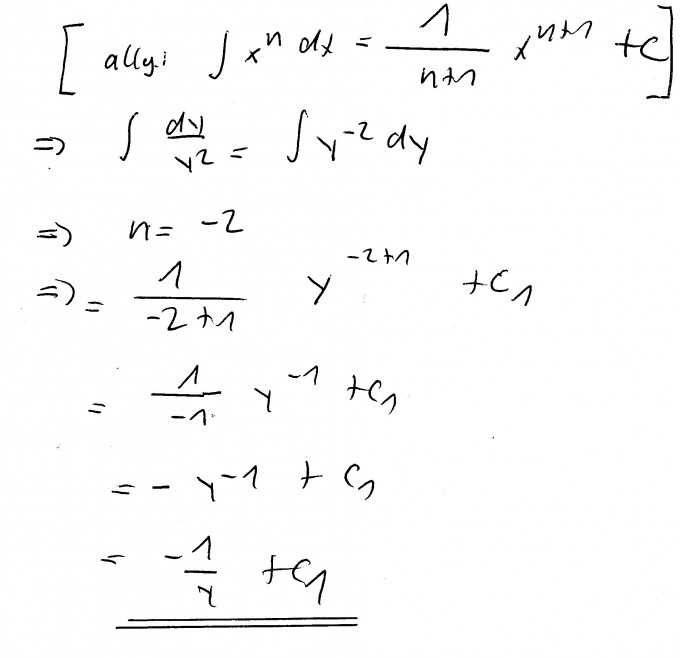 [ allg: ∫ xⁿ dx = 1/(n+1) xⁿ⁺¹ + C ]
⇒ ∫ dy/y² = ∫ y⁻² dy
⇒ n = -2
⇒ = 1/(-2+1) y⁻²⁺¹ + C₁
= 1/-1 y⁻¹ + C₁
= - y⁻¹ + C₁
= -1/y + C₁